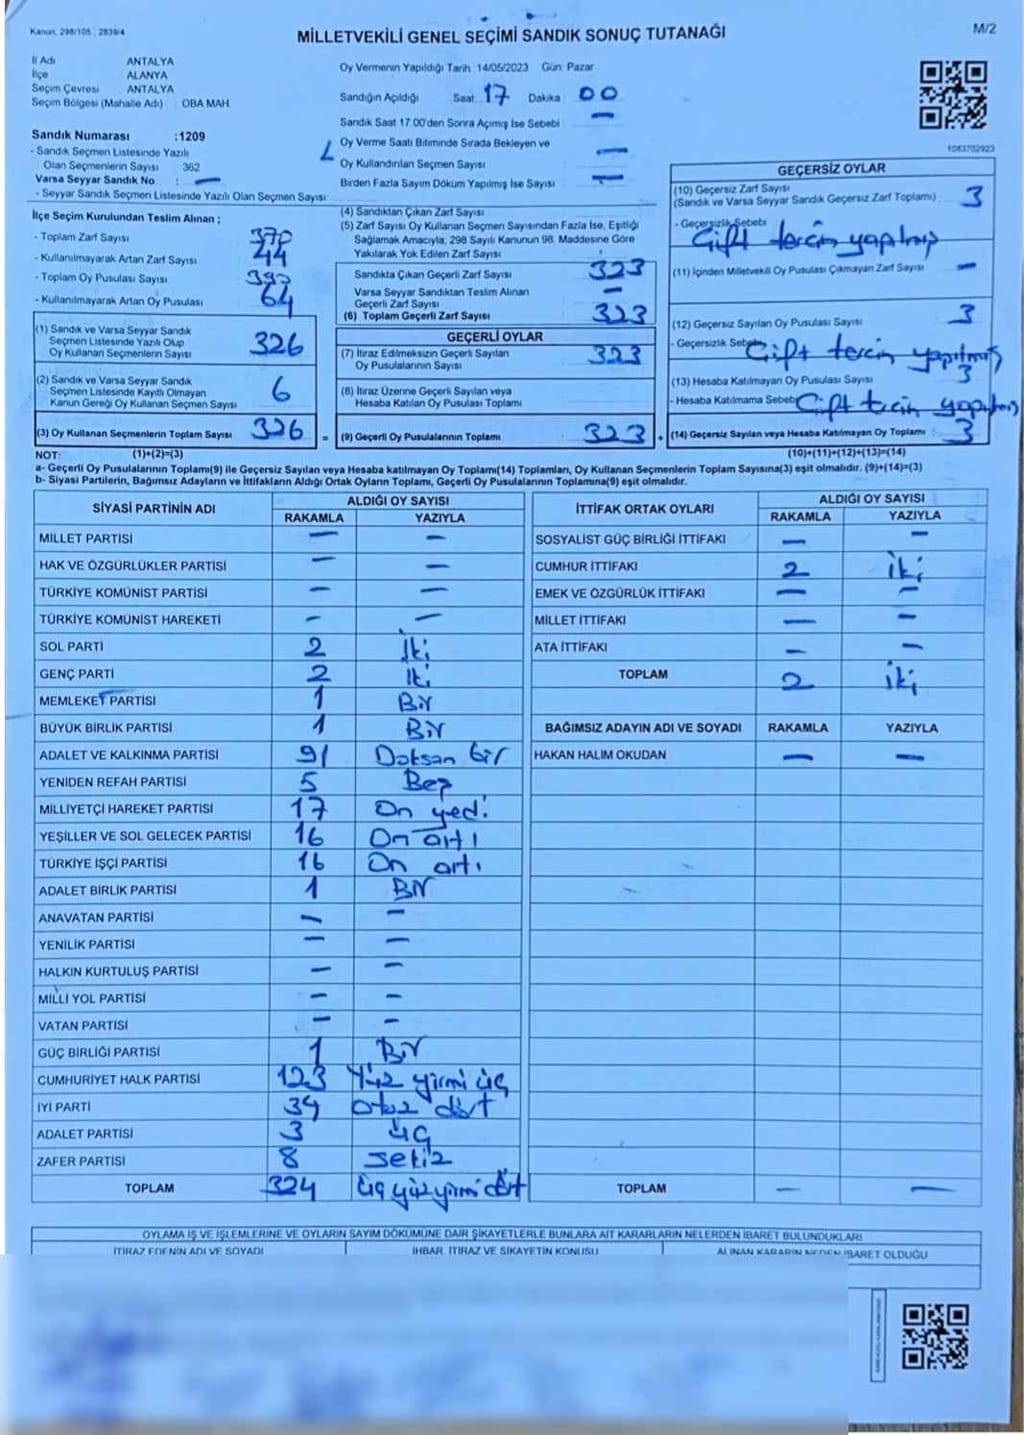 Kanun, 298/105 , 2839/4
M/2
MİLLETVEKİLİ GENEL SEÇİMİ SANDIK SONUÇ TUTANAĞI
İl Adı ANTALYA
İlçe ALANYA
Seçim Çevresi ANTALYA
Seçim Bölgesi (Mahalle Adı) OBA MAH.
Sandık Numarası :1209
- Sandık Seçmen Listesinde Yazılı
Olan Seçmenlerin Sayısı 362
Varsa Seyyar Sandık No : —
- Seyyar Sandık Seçmen Listesinde Yazılı Olan Seçmen Sayısı
Oy Vermenin Yapıldığı Tarih :14/05/2023 Gün: Pazar
Sandığın Açıldığı Saat 17 Dakika 00
Sandık Saat 17.00'den Sonra Açımış İse Sebebi —
Oy Verme Saati Bitiminde Sırada Bekleyen ve
Oy Kullandırılan Seçmen Sayısı —
Birden Fazla Sayım Döküm Yapılmış İse Sayısı —
1083702923
İlçe Seçim Kurulundan Teslim Alınan ;
- Toplam Zarf Sayısı 370
- Kullanılmayarak Artan Zarf Sayısı 44
- Toplam Oy Pusulası Sayısı
- Kullanılmayarak Artan Oy Pusulası 64
(1) Sandık ve Varsa Seyyar Sandık
Seçmen Listesinde Yazılı Olup
Oy Kullanan Seçmenlerin Sayısı 326
(2) Sandık ve Varsa Seyyar Sandık
Seçmen Listesinde Kayıtlı Olmayan
Kanun Gereği Oy Kullanan Seçmen Sayısı 6
(3) Oy Kullanan Seçmenlerin Toplam Sayısı 326 =
(4) Sandıktan Çıkan Zarf Sayısı
(5) Zarf Sayısı Oy Kullanan Seçmen Sayısından Fazla İse, Eşitliği
Sağlamak Amacıyla; 298 Sayılı Kanunun 98. Maddesine Göre
Yakılarak Yok Edilen Zarf Sayısı
Sandıkta Çıkan Geçerli Zarf Sayısı 323
Varsa Seyyar Sandıktan Teslim Alınan
Geçerli Zarf Sayısı —
(6) Toplam Geçerli Zarf Sayısı 323
GEÇERLİ OYLAR
(7) İtiraz Edilmeksizin Geçerli Sayılan
Oy Pusulalarının Sayısı 323
(8) İtiraz Üzerine Geçerli Sayılan veya
Hesaba Katılan Oy Pusulası Toplamı
(9) Geçerli Oy Pusulalarının Toplamı 323 +
GEÇERSİZ OYLAR
(10) Geçersiz Zarf Sayısı
(Sandık ve Varsa Seyyar Sandık Geçersiz Zarf Toplamı) : 3
- Geçersizlik Sebebi
Çift tercih yapılmış
(11) İçinden Milletvekili Oy Pusulası Çıkmayan Zarf Sayısı —
(12) Geçersiz Sayılan Oy Pusulası Sayısı 3
- Geçersizlik Sebebi Çift tercih yapılmış
(13) Hesaba Katılmayan Oy Pusulası Sayısı 3
- Hesaba Katılmama Sebebi Çift tercih yapılmış
(14) Geçersiz Sayılan veya Hesaba Katılmayan Oy Toplamı : 3
NOT: (1)+(2)=(3) (10)+(11)+(12)+(13)=(14)
a- Geçerli Oy Pusulalarının Toplamı(9) ile Geçersiz Sayılan veya Hesaba katılmayan Oy Toplam(14) Toplamları, Oy Kullanan Seçmenlerin Toplam Sayısına(3) eşit olmalıdır. (9)+(14)=(3)
b- Siyasi Partilerin, Bağımsız Adayların ve İttifakların Aldığı Ortak Oyların Toplamı, Geçerli Oy Pusulalarının Toplamına(9) eşit olmalıdır.
SİYASİ PARTİNİN ADI ALDIĞI OY SAYISI
RAKAMLA YAZIYLA
MİLLET PARTİSİ — —
HAK VE ÖZGÜRLÜKLER PARTİSİ — —
TÜRKİYE KOMÜNİST PARTİSİ — —
TÜRKİYE KOMÜNİST HAREKETİ — —
SOL PARTİ 2 İki
GENÇ PARTİ 2 İki
MEMLEKET PARTİSİ 1 Bir
BÜYÜK BİRLİK PARTİSİ 1 Bir
ADALET VE KALKINMA PARTİSİ 91 Doksan bir
YENİDEN REFAH PARTİSİ 5 Beş
MİLLİYETÇİ HAREKET PARTİSİ 17 On yedi
YEŞİLLER VE SOL GELECEK PARTİSİ 16 On altı
TÜRKİYE İŞÇİ PARTİSİ 16 On altı
ADALET BİRLİK PARTİSİ 1 Bir
ANAVATAN PARTİSİ — —
YENİLİK PARTİSİ — —
HALKIN KURTULUŞ PARTİSİ — —
MİLLİ YOL PARTİSİ — —
VATAN PARTİSİ — —
GÜÇ BİRLİĞİ PARTİSİ 1 Bir
CUMHURİYET HALK PARTİSİ 123 Yüz yirmi üç
İYİ PARTİ 34 Otuz dört
ADALET PARTİSİ 3 üç
ZAFER PARTİSİ 8 sekiz
TOPLAM 324 üç yüz yirmi dört
İTTİFAK ORTAK OYLARI ALDIĞI OY SAYISI
RAKAMLA YAZIYLA
SOSYALİST GÜÇ BİRLİĞİ İTTİFAKI — —
CUMHUR İTTİFAKI 2 iki
EMEK VE ÖZGÜRLÜK İTTİFAKI — —
MİLLET İTTİFAKI — —
ATA İTTİFAKI — —
TOPLAM 2 iki
BAĞIMSIZ ADAYIN ADI VE SOYADI RAKAMLA YAZIYLA
HAKAN HALİM OKUDAN — —
TOPLAM — —
OYLAMA İŞ VE İŞLEMLERİNE VE OYLARIN SAYIM DÖKÜMÜNE DAİR ŞİKAYETLERLE BUNLARA AİT KARARLARIN NELERDEN İBARET BULUNDUKLARI
İTİRAZ EDENİN ADI VE SOYADI İHBAR, İTİRAZ VE ŞİKAYETİN KONUSU ALINAN KARARIN NEDEN İBARET OLDUĞU